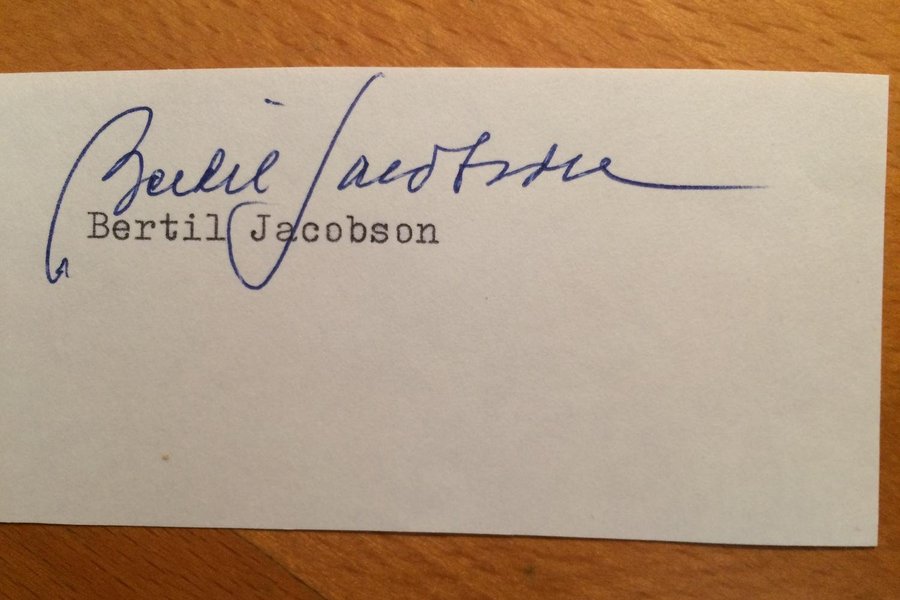 Bertil Jacobson
Bertil Jacobson